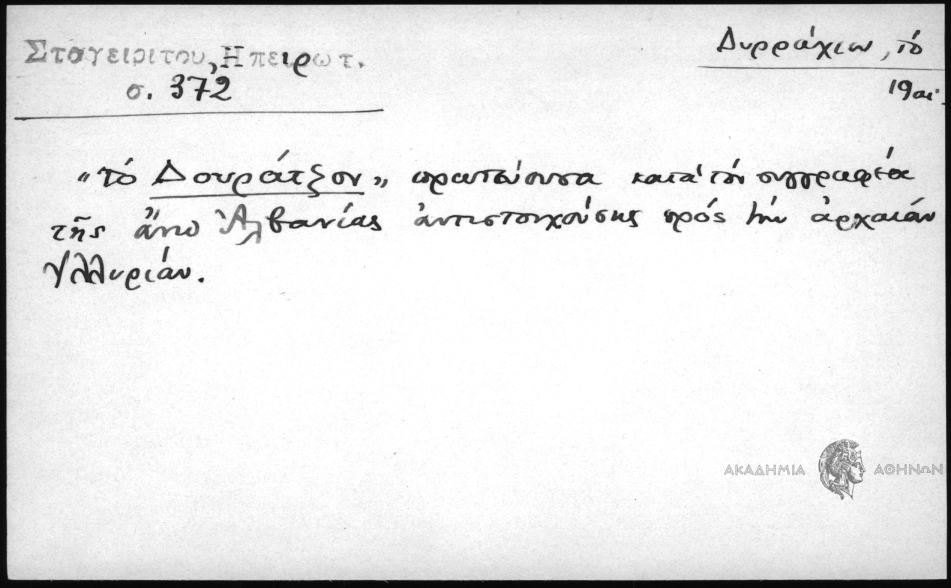 Σταγειρίτου, Ηπειρωτ.
σ. 372
Δυρράχιον, τό
19 αι.
"τό Δουράτζον", πρωτεύουσα κατά τόν συγγραφέα
τῆς ἄνω Ἀλβανίας ἀντιστοιχούσης πρός τήν ἀρχαίαν
Ἰλλυρίαν.
ΑΚΑΔΗΜΙΑ ΑΘΗΝΩΝ